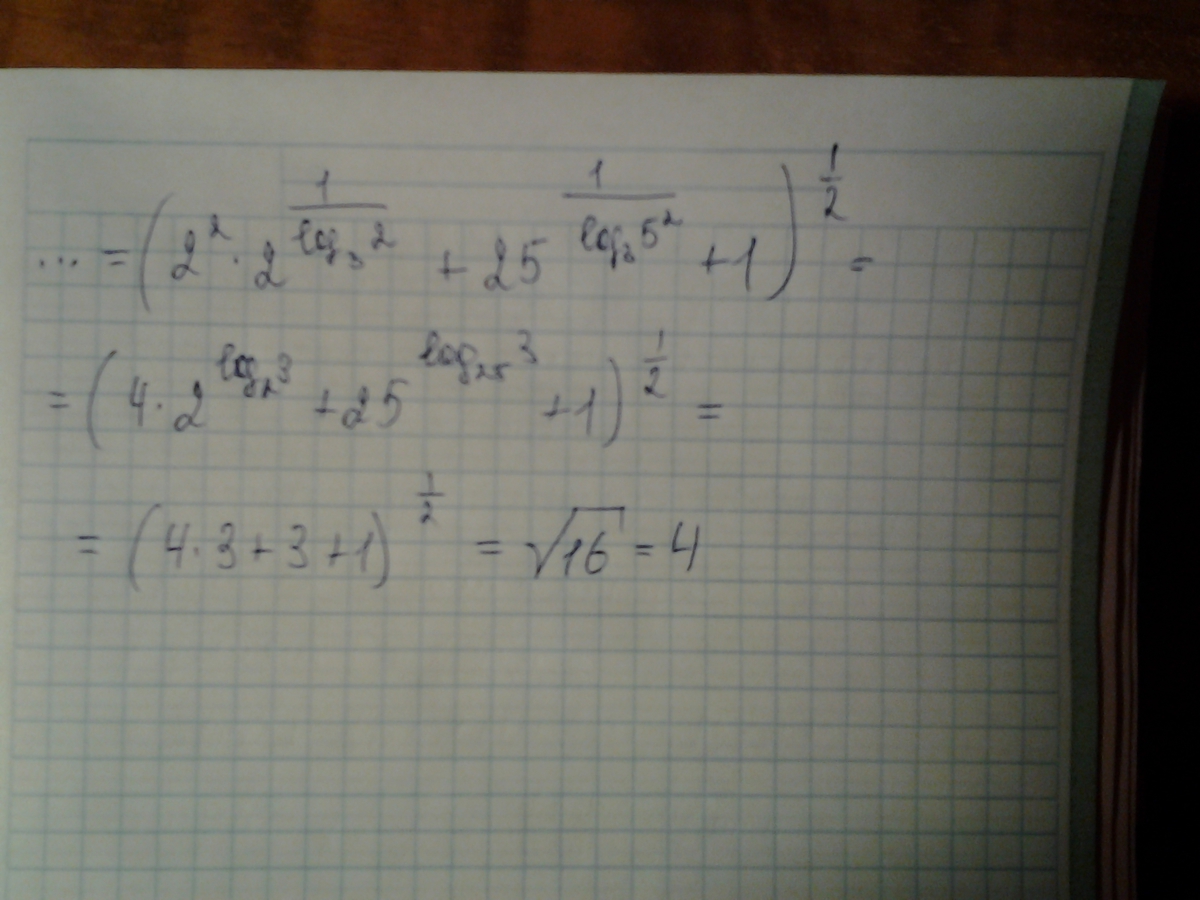 ... = (2² · 2^(1/log₃2) + 25^(1/log₃5²) + 1)^(1/2) =
= (4 · 2^(log₂3) + 25^(log₂₅3) + 1)^(1/2) =
= (4 · 3 + 3 + 1)^(1/2) = √16 = 4